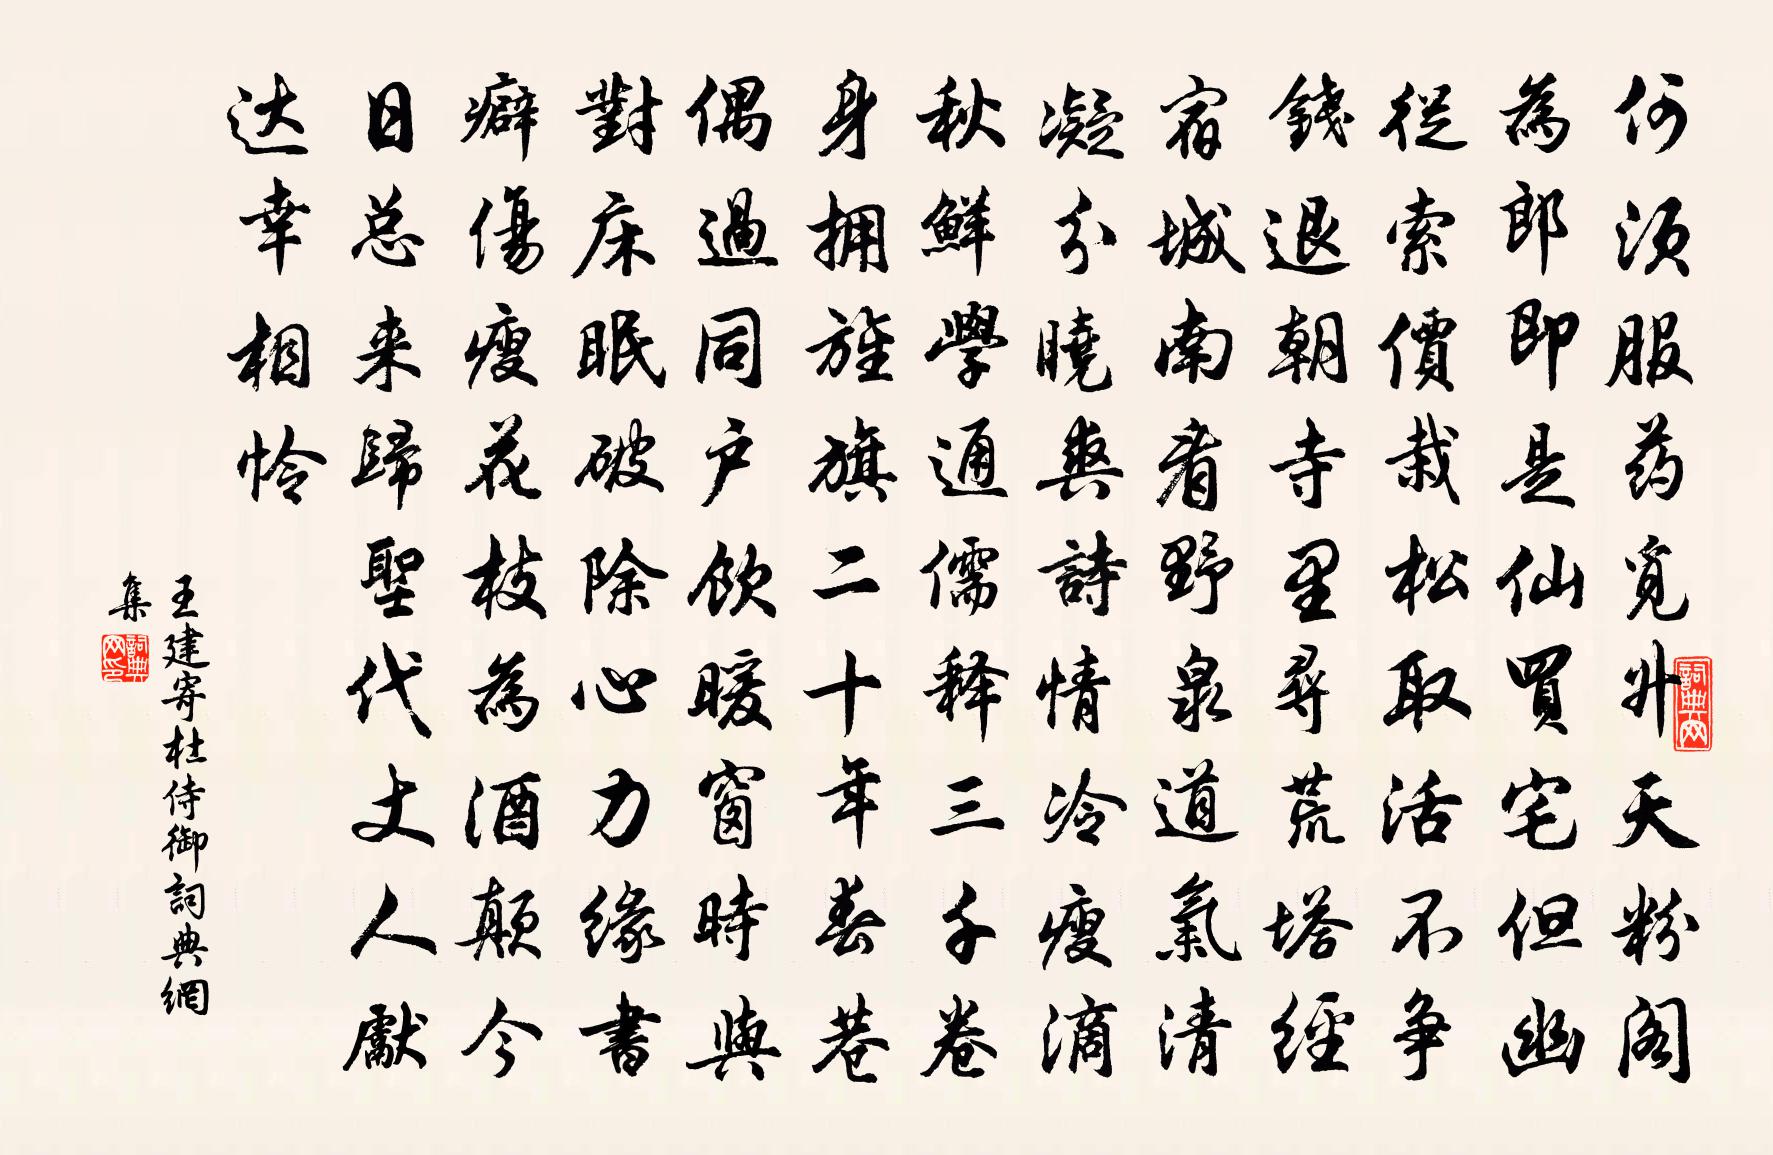 何须服药觅升天粉阁
為郎即是仙買宅但幽
從索價栽松取活不争
錢退朝寺里尋荒塔經
宿城南看野泉道氣清
凝分曉爽詩情冷瘦滴
秋鮮學通儒释三千卷
身拥旌旗二十年春巷
偶過同户飲暖窗時與
對床眠破除心力緣書
癖傷瘦花枝為酒顛今
日总来歸聖代丈人獻
达幸相怜
王建寄杜侍御詞典網
集
詞典网
詞典网印